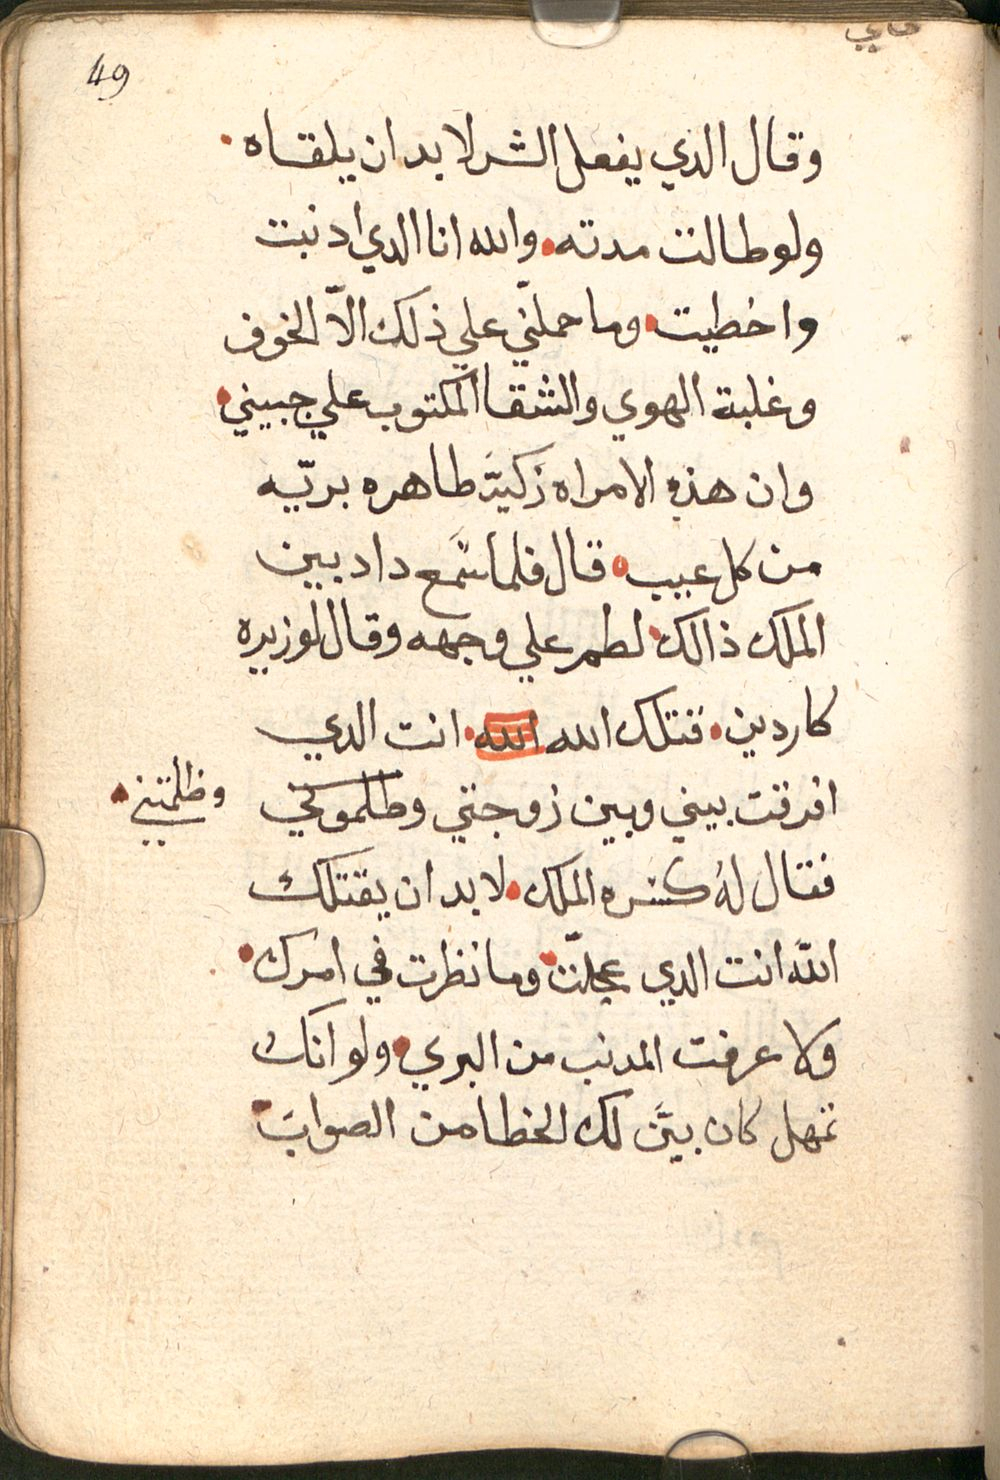 49
وقال الذي يفعل الشر لا بد ان يلقاه
ولو طالت مدته والله انا الدي ادنبت
واخطيت وما حملنّي علي ذلك الاّ الخوف
وغلبة الهوي والشقا المكتوب علي جبيني
وان هذه الامراه زكيّة طاهره بريّه
من كل عيب قال فلما سمع دادبين
الملك ذالك لطم علي وجهه وقال لوزيره
كاردين قتلك الله الله انت الدي
افرقت بيني وبين زوجتي وظلموني وظلمتني
فقال له كسره الملك لا بد ان يقتلك
اللّه انت الدي عجلّت وما نظرت في امرك
ولا عرفت المدنب من البري ولو انك
تمهل كان بيّن لك الخطا من الصواب